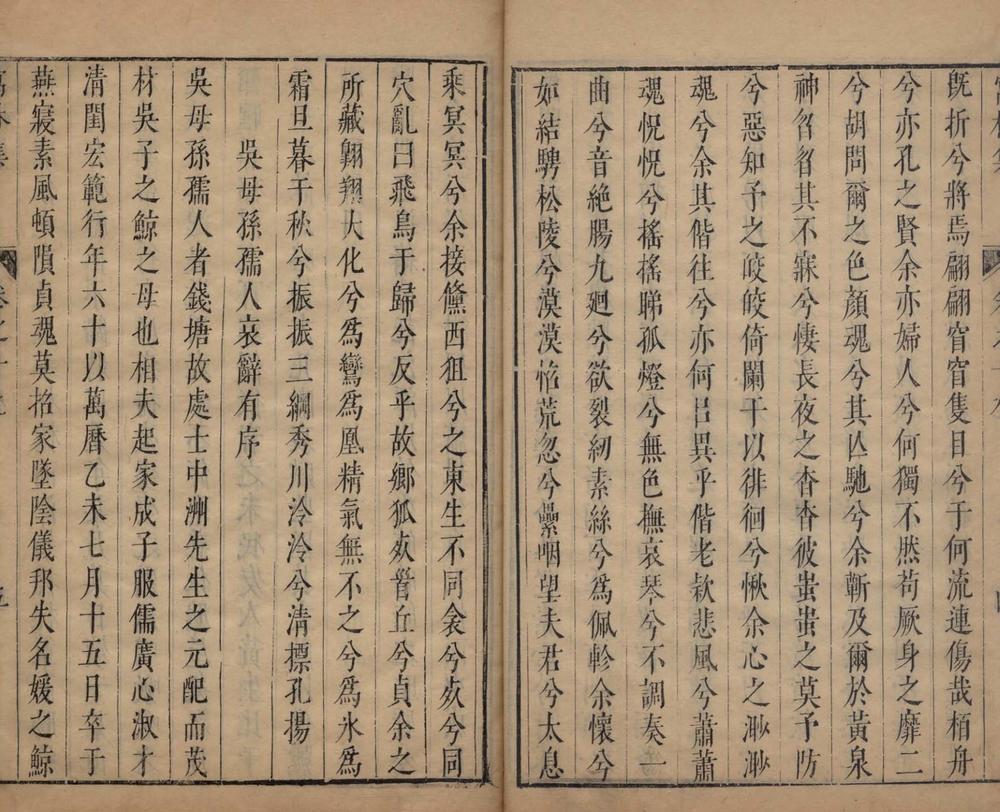 既折兮將焉翩翩窅窅隻目兮于何流連傷哉栢舟
兮亦孔之賢余亦婦人兮何獨不然苟厥身之靡二
兮胡問爾之色顏魂兮其亾馳兮余斬及爾於黃泉
神召召其不寐兮悽長夜之杳杳彼蚩蚩之莫予防
兮惡知予之皎皎倚闌干以徘徊兮愀余心之渺渺
魂兮余其偕往兮亦何㠯異乎偕老欸悲風兮蕭蕭
魂怳怳兮榣榣睇孤燈兮無色撫哀琴兮不調奏一
曲兮音絶腸九廻兮欲裂紉素絲兮爲佩軫余懷兮
如結騁松陵兮漠漠恡荒忽兮纍咽望夫君兮太息
乘冥冥兮余接儵西狙兮之東生不同衾兮㱙兮同
穴亂曰飛鳥于歸兮反乎故鄉狐㱙管丘兮貞余之
所藏翱翔大化兮爲鸞爲凰精氣無不之兮爲氷爲
霜旦暮千秋兮振振三綱秀川泠泠兮清摽孔揚
吳母孫孺人哀辭有序
吳母孫孺人者錢塘故處士中洲先生之元配而茂
材吳子之鯨之母也相夫起家成子服儒廣心淑才
清閨宏範行年六十以萬曆乙未七月十五日卒于
燕寢素風頓隕貞魂莫招家墜陰儀邦失名媛之鯨